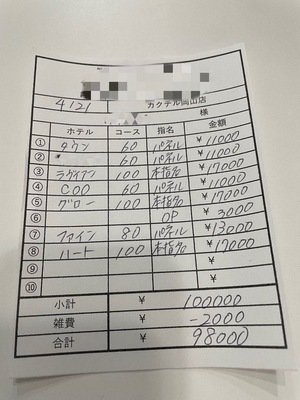 4/21 カクテル岡山店
様
ホテル コース 指名 金額
① タウン 60 パネル ¥11000
② 60 パネル ¥11000
③ ラヴィアン 100 本指名 ¥17000
④ COO 60 パネル ¥11000
⑤ グロー 100 本指名 ¥17000
⑥ OP ¥3000
⑦ ファイン 80 パネル ¥13000
⑧ ハート 100 本指名 ¥17000
⑨ ¥
⑩ ¥
小計 ¥ 100000
雑費 ¥ -2000
合計 ¥ 98000